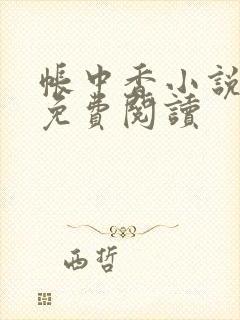 帳中香小說
免費閱讀
西哲